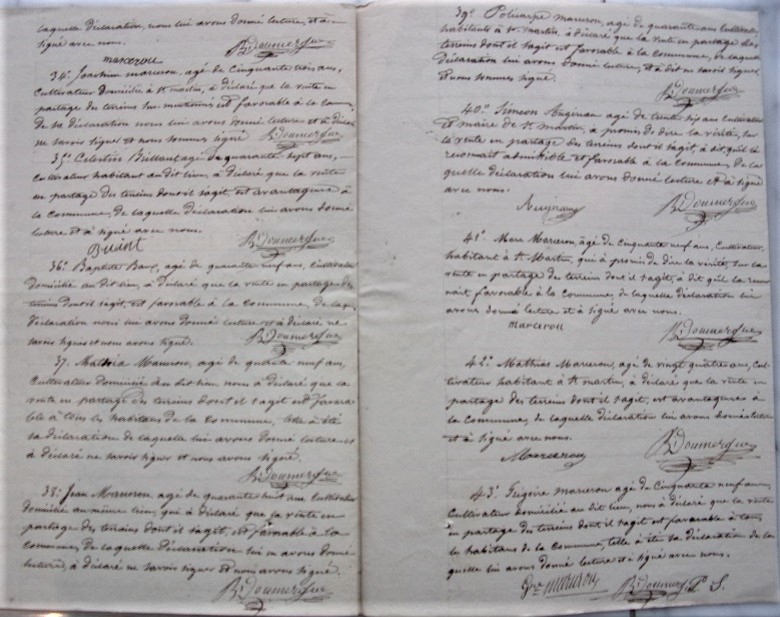 laquelle déclaration, nous lui avons donné lecture, et à
signé avec nous.
marcerou
Bt Doumergue
34º. Joachim marceron, agé de Cinquante trois ans,
Cultivateur domicilié à st martin, à déclaré que la vente en
partage de terrins est favorable à la Comne,
de sa déclaration nous lui avons donné lecture et à déclaré
ne savoir signer et nous sommes signé Bt Doumergue
35º Celestin agé de quarante sept ans,
cultivateur habitant au dit lieu, à déclaré que la vente
en partage des terrins dont il s'agit, est avantageuse à
la Commune, de laquelle déclaration lui avons donné
lecture et à signé avec nous.
Bt Doumergue
36º. Baptiste agé de quarante neuf ans, Cultivateur
domicilié au dit lieu, à déclaré que la vente en partage des
terrins dont il s'agit, est favorable à la Commune, de laq.
déclaration nous lui avons donné lecture et à déclaré ne
savoir signer et nous avons signé. Bt Doumergue
37. Mathieu Marceron, agé de quarante neuf ans,
Cultivateur domicilié au dit lieu nous à déclaré que la
vente en partage des terrins dont il s'agit est favora-
ble à tous les habitans de la Commune, telle à été
sa déclaration de laquelle lui avons donné lecture et
à déclaré ne savoir signer et nous avons signé.
Bt Doumergue
38º. Jean Marceron, agé de quarante huit ans, Cultivateur
domicilié au même lieu, qui à déclaré que la vente en
partage des terrins dont il s'agit, est favorable à la
commune, de laquelle déclaration lui en avons donné
lecture, à déclaré ne savoir signer et nous avons signé.
Bt Doumergue
39º. Policarpe marceron, agé de quarante ans Cultivateur
habitants à st. martin, à déclaré que la vente en partage des
terrins dont il s'agit est favorable à la commune, de laquelle
déclaration lui avons donné lecture, et à dit ne savoir signer,
et nous sommes signé.
Bt Doumergue
40º. Simeon Auginau agé de trente six ans Cultivateur
et maire de st. Martin, à promis de dire la vérité, sur
la vente en partage des terrins dont il s'agit, à dit, qu'il la
reconnait admissible et favorable à la commune, de la
quelle déclaration lui avons donné lecture et à signé
avec nous.
Bt Doumergue
41º. Marc Marceron, agé de Cinquante neuf ans, Cultivateur,
habitant à st Martin, qui à promis de dire la vérité, sur la
vente en partage de terrins dont il s'agit, à dit qu'il la recon
nait favorable à la Commune, de laquelle déclaration lui
avons donné lecture et à signé avec nous.
marcerou
Bt Doumergue
42º. Mathias Marceron, agé de vingt quatre ans, Cul-
tivateur habitant à st martin, à déclaré que la vente en
partage des terrins dont il s'agit, est avantageuse à
la Commune, de laquelle déclaration lui avons donné lecture
et à signé avec nous.
Marcerou
Bt Doumergue
43º. Grégoire marceron agé de Cinquante neuf ans,
Cultivateur domicilié au dit lieu, nous à déclaré que la vente
en partage des terrins dont il s'agit est favorable à tous
les habitans de la Commune, telle à été sa déclaration de la-
quelle lui avons donné lecture et à signé avec nous.
Gre marceron Bt Doumergue